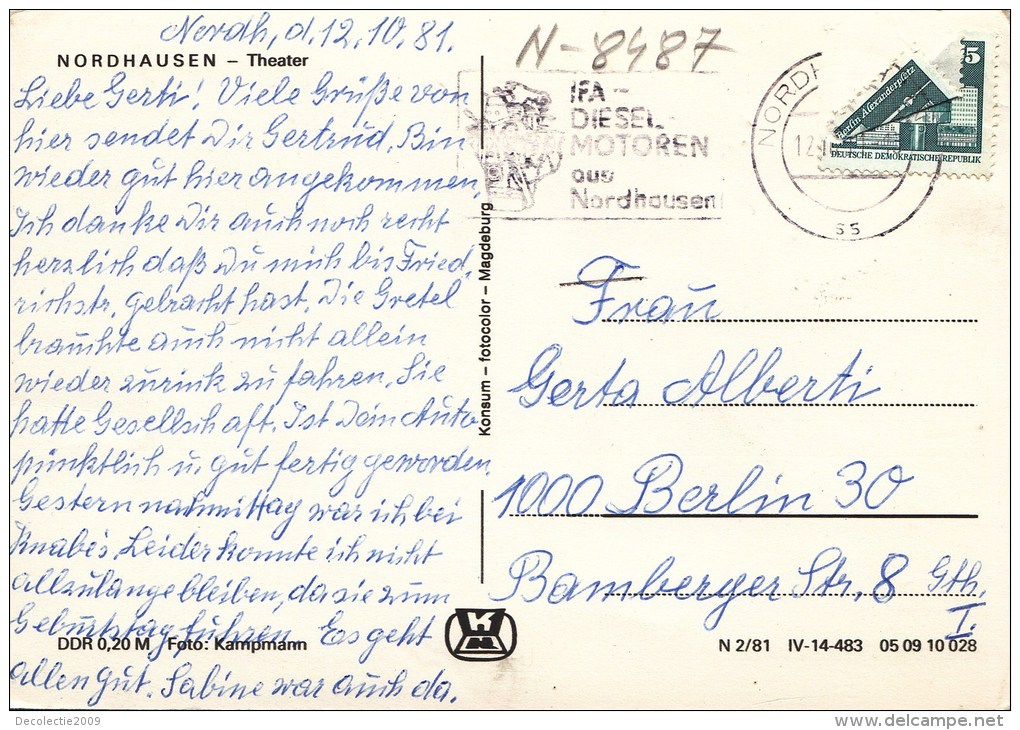 Nordh, d. 12. 10. 81.
NORDHAUSEN – Theater
Liebe Gerti! Viele Grüße von
hier sendet Dir Gertrud, Bin
wieder gut hier angekommen,
Ich danke Dir auch noch recht
herzlich daß Du mich bis Fried,
richstr. gebracht hast. Die Gretel
brauchte auch nicht allein
wieder zurück zu fahren, Sie
hatte Gesellschaft. Ist Dein Auto
pünktlich u. gut fertig geworden.
Gestern nachmittag war ich bei
Knabe's. Leider konnte ich nicht
allzulange bleiben, da sie zum
Geburtstag führen. Es geht
allen gut. Sabine war auch da.
DDR 0,20 M Foto: Kampmann
Konsum – fotocolor – Magdeburg
N-8487
IFA-
DIESEL-
MOTOREN
aus
Nordhausen
NORDH
12
5
Berlin-Alexanderplatz
DEUTSCHE DEMOKRATISCHE REPUBLIK
Frau
Gerta Alberti
1000 Berlin 30
Bamberger Str. 8 Gth.
I.
N 2/81 IV-14-483 05 09 10 028
Decolectie2009
www.delcampe.net